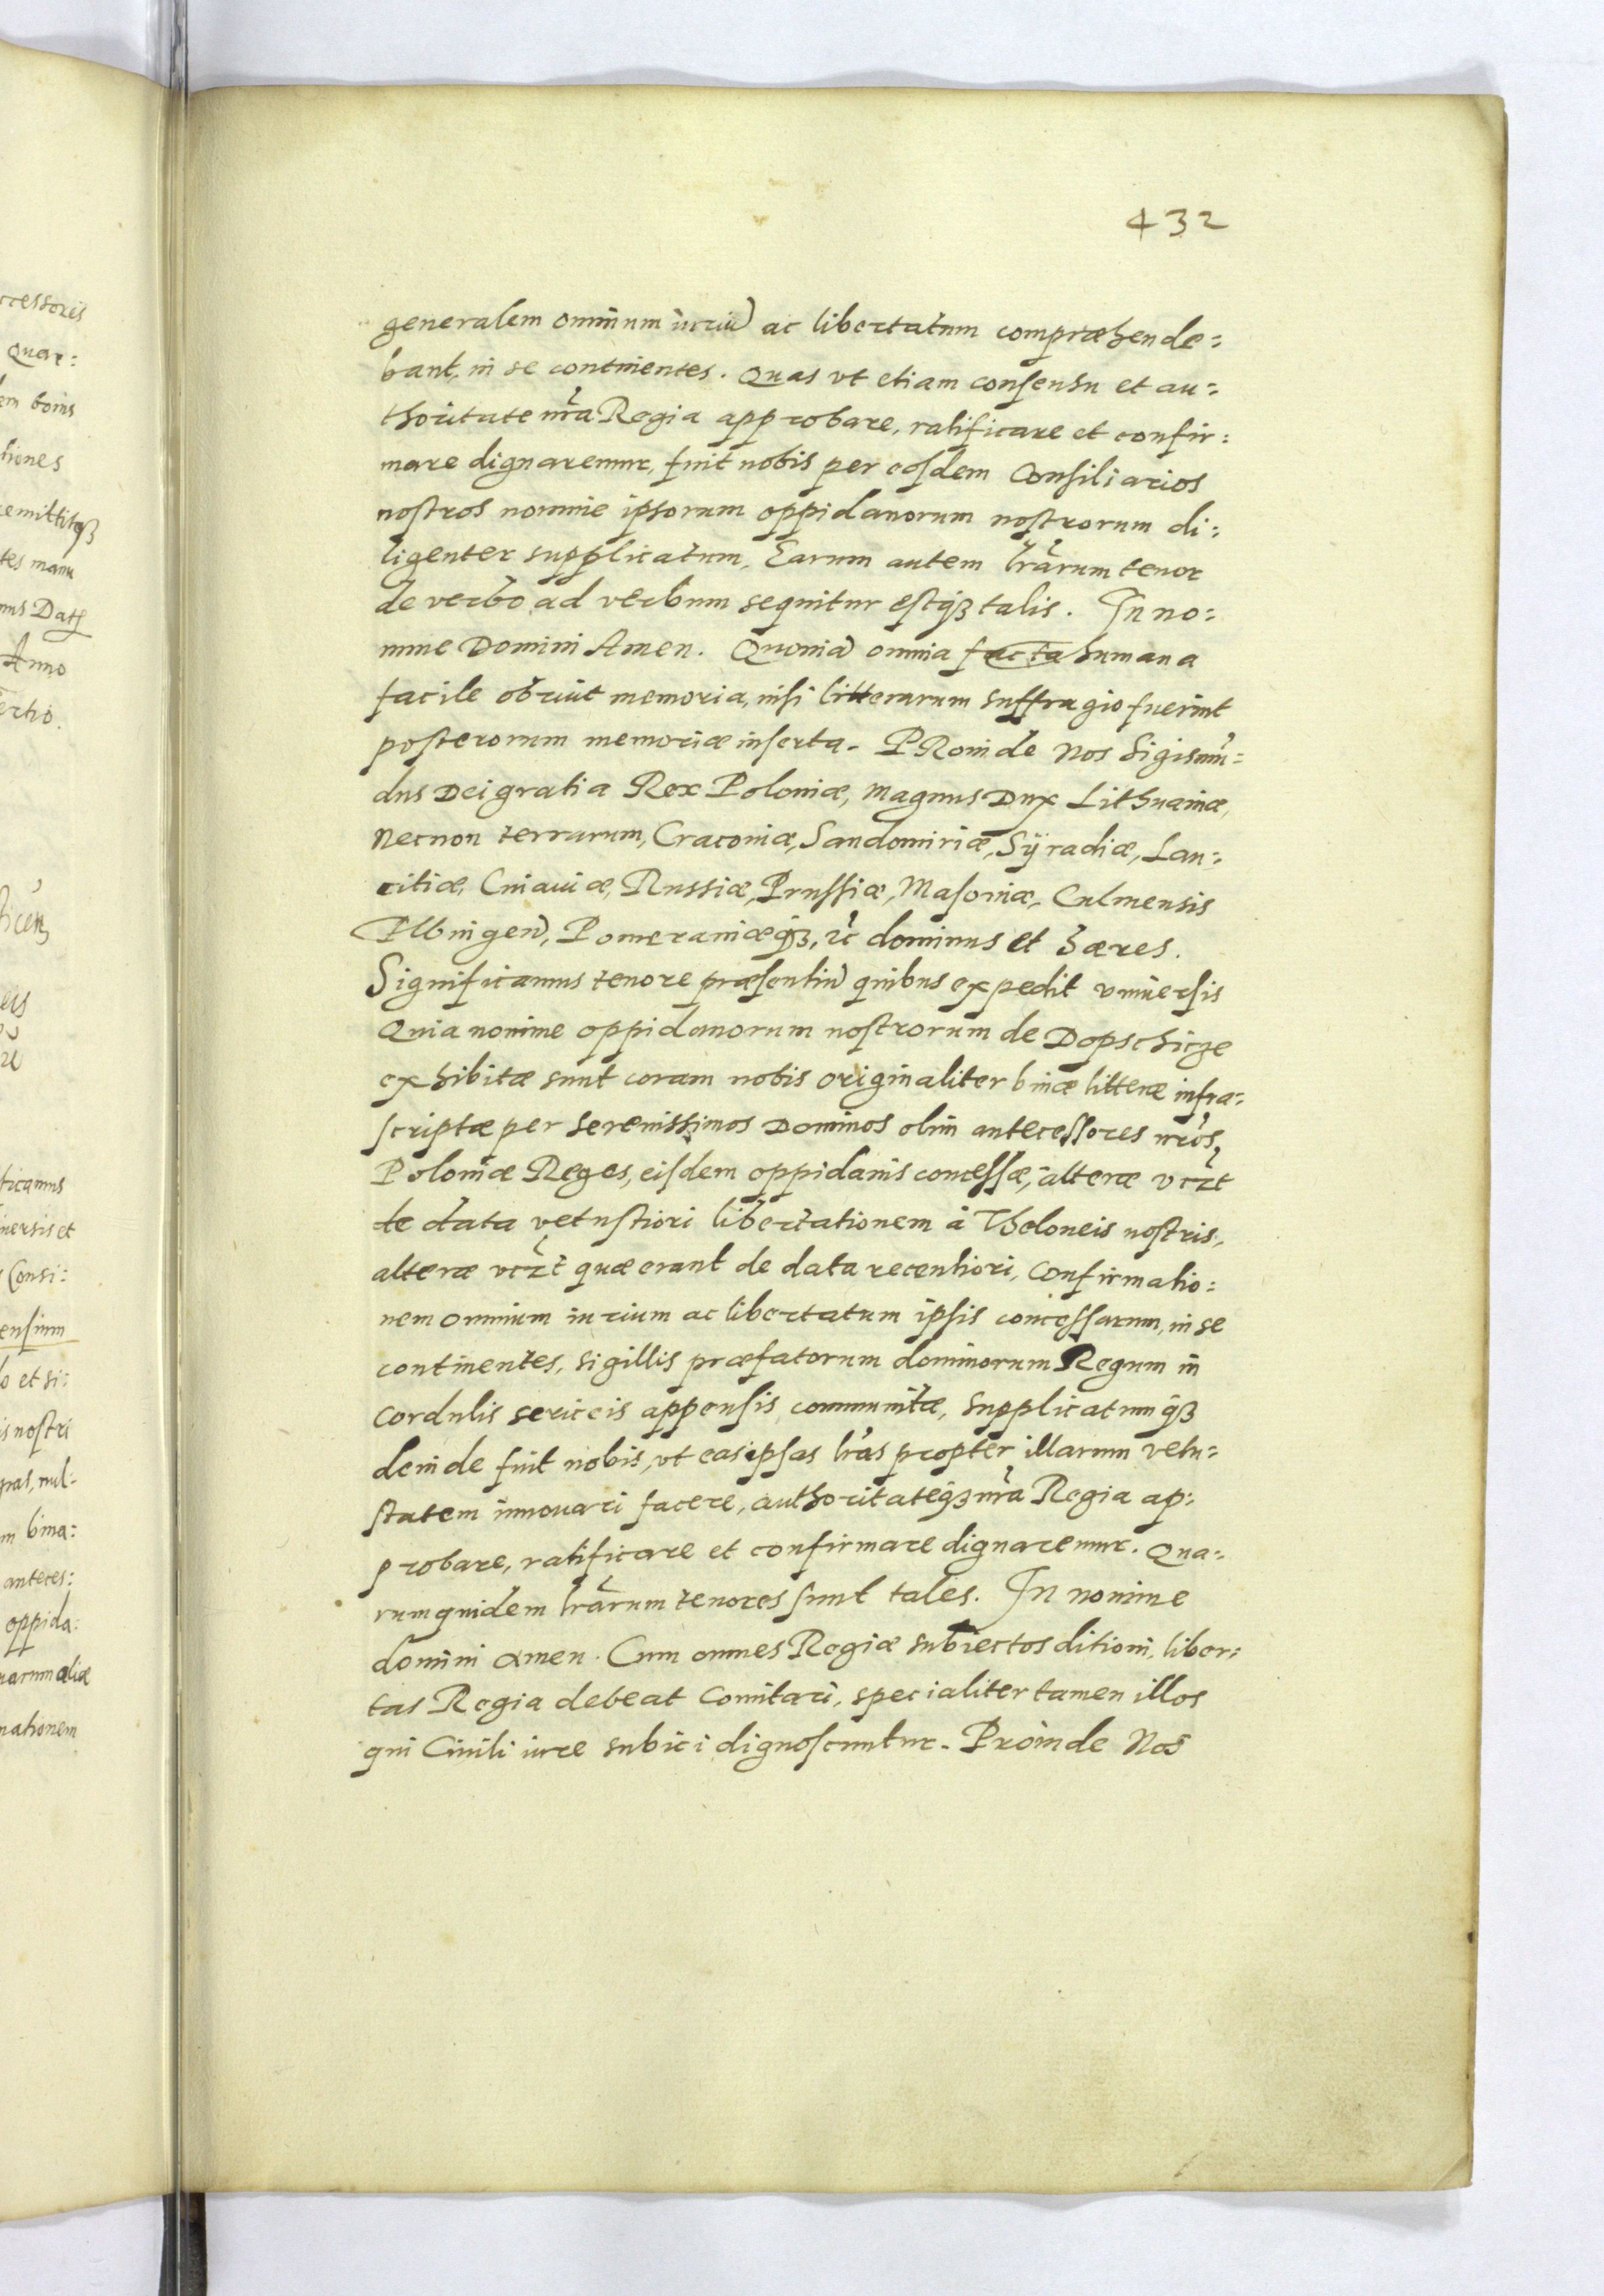 432
generalem omnium iuriū ac libertatum compræhende:
bant, in se continentes. Quas vt etiam consensu et au:
thoritate nr̃a Regia approbare, ratificare et confir:
mare dignaremur, fuit nobis per eosdem Consiliarios
nostros nomine ipsorum oppidanorum nostrorum di:
ligenter supplicatum, Earum autem lr̃arum tenor
de verbo ad verbum sequitur estq3 talis. In no:
mine Domini Amen. Quoniā omnia facta humana
facile obruit memoria, nisi litterarum suffragio fuerint
posterorum memoriæ inserta. PRoinde Nos Sigismũ:
dus Dei gratia Rex Poloniæ, Magnus Dux Lithuaniæ,
Necnon terrarum, Cracoviæ, Sandomiriæ, Sÿradiæ, Lan:
citiæ, Cuiauiæ, Russiæ, Prussiæ, Masoviæ, Culmensis
Elbingeñ, Pomeraniæq3, &c̃ dominus et hæres.
Significamus tenore præsentiū quibus expedit vniuersis
Quia nomine oppidanorum nostrorum de Dopschicze
exhibitæ sunt coram nobis originaliter binæ litteræ infra:
scriptæ per Serenissimos Dominos olim antecessores nr̃os,
Poloniæ Reges, eisdem oppidanis concessæ, alteræ vcz̃t
de data vetustiori libertationem à Theloneis nostris,
alteræ vcz̃t quæ erant de data recentiori, Confirmatio:
nem omnium iurium ac libertatum ipsis concessarum, in se
continentes, sigillis præfatorum dominorum Regum in
cordulis sericeis appensis communitæ, Supplicatumq3
deinde fuit nobis, vt eas ipsas lr̃as propter illarum vetu:
statem innouari facere, authoritateq3 nr̃a Regia ap:
probare, ratificare et confirmare dignaremur. Qua:
rum quidem lr̃arum tenores sunt tales. In nomine
domini amen. Cum omnes Regiæ subiectos ditioni, liber:
tas Regia debeat Comitari, specialiter tamen illos
qui Ciuili iure subici dignoscuntur. Proinde Nos